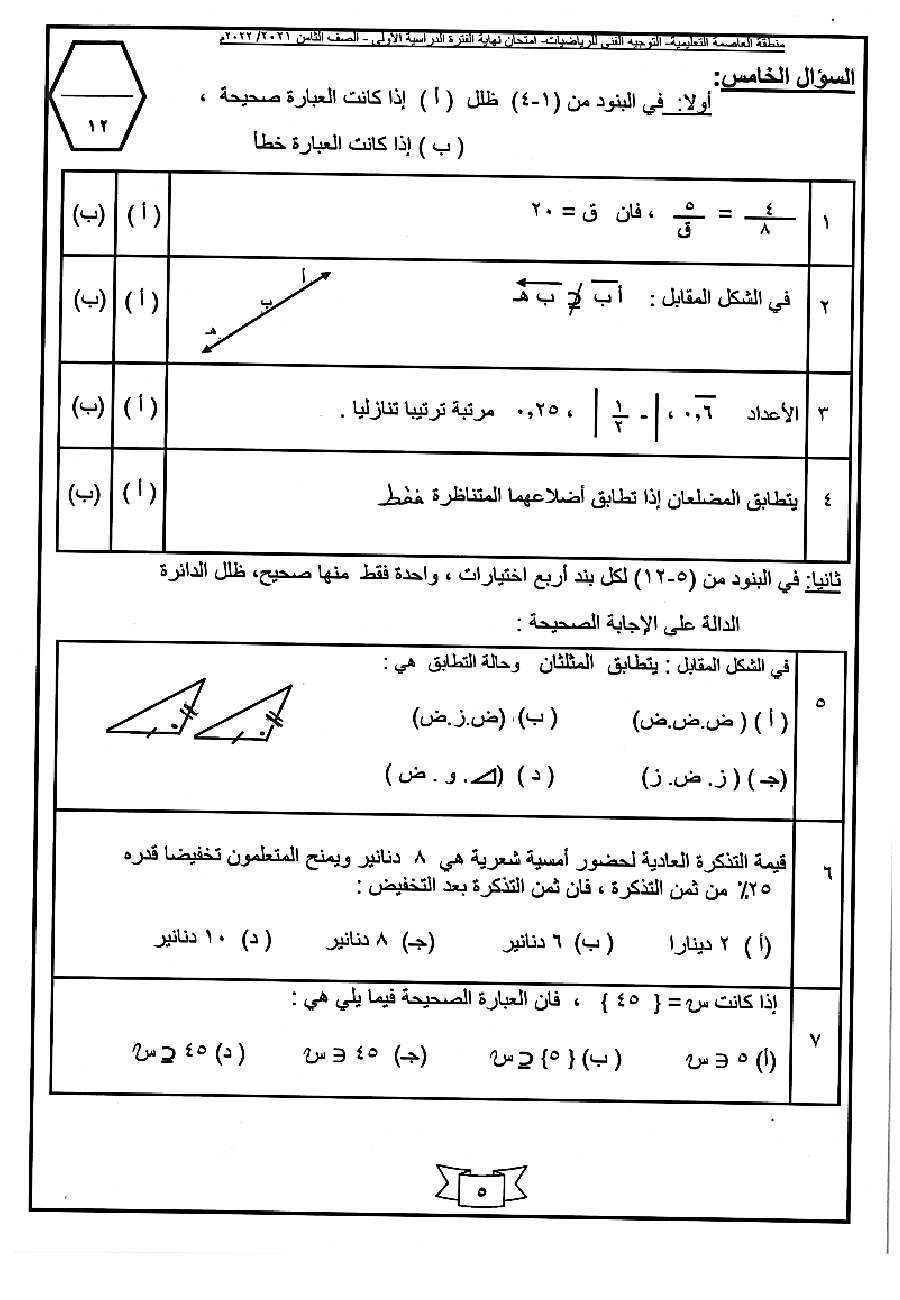 منطقة العاصمة التعليمية- التوجيه الفني للرياضيات- امتحان نهاية الفترة الدراسية الأولى - الصف الثامن ٢٠٢١/ ٢٠٢٢م
السؤال الخامس:
١٢
أولا: في البنود من (١-٤) ظلل ( أ ) إذا كانت العبارة صحيحة ،
( ب ) إذا كانت العبارة خطأ
١ ٤/٨ = ٥/ق ، فان ق = ٢٠ ( أ ) (ب)
٢ في الشكل المقابل : أ ب ⊄ ب هـ ( أ ) (ب)
أ
ب
هـ
٣ الأعداد ٠,٦ ، | - ١/٢ | ، ٠,٢٥ مرتبة ترتيبا تنازليا . ( أ ) (ب)
٤ يتطابق المضلعان إذا تطابق أضلاعهما المتناظرة فقط ( أ ) (ب)
ثانيا: في البنود من (٥-١٢) لكل بند أربع اختيارات ، واحدة فقط منها صحيح، ظلل الدائرة
الدالة على الإجابة الصحيحة :
٥ في الشكل المقابل : يتطابق المثلثان وحالة التطابق هي :
( أ ) ( ض.ض.ض) ( ب) (ض.ز.ض)
(جـ ) ( ز. ض. ز) ( د ) (⊿. و . ض )
٦ قيمة التذكرة العادية لحضور أمسية شعرية هي ٨ دنانير ويمنح المتعلمون تخفيضا قدره
٢٥٪ من ثمن التذكرة ، فان ثمن التذكرة بعد التخفيض :
(أ ) ٢ دينارا ( ب) ٦ دنانير (جـ) ٨ دنانير ( د) ١٠ دنانير
٧ إذا كانت س = { ٤٥ } ، فان العبارة الصحيحة فيما يلي هي :
(أ) ٥ ∋ س ( ب) { ٥} ⊇ س (جـ) ٤٥ ∋ س ( د) ٤٥ ⊇ س
٥